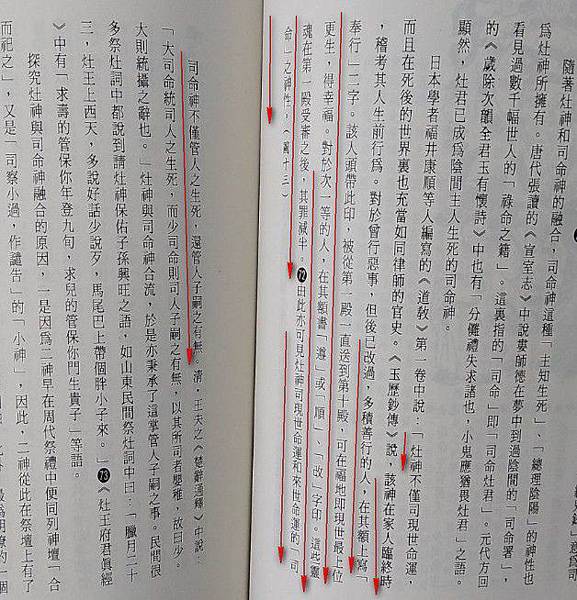 隨著灶神和司命神的融合，司命神這種「主知生死」、「總理陰陽」的神性也
爲灶神所擁有。唐代張讀的《宣室志》中說婁師德在夢中到過陰間的「司命署」，
看見過數千幅世人的「祿命之籍」。這裏指的「司命」即「司命灶君」。元代方回
的《歲除次韻全君玉有懷詩》中也有「分儺禮失求諸也，小鬼應猶畏灶君」之語。
顯然，灶君已成爲陰間主人生死的司命神。
日本學者福井康順等人編寫的《道敎》第一卷中說：「灶神不僅司現世命運，
而且在死後的世界裏也充當如同律師的官吏。《玉歷鈔傳》說，該神在家人臨終時
，稽考其人生前行爲。對於曾行惡事，但後已改過，多積善行的人，在其額上寫「
奉行」二字。該人頭帶此印，被從第一殿一直送到第十殿，可在福地即現世最上位
更生，得幸福。對於次一等的人，在其額書「遵」或「順」、「改」字印。這些靈
魂在第一殿受審之後，其罪減半。72由此亦可見灶神司現世命運和來世命運的「司
命」之神性。（圖十三）
司命神不僅管人之生死，還管人子嗣之有無。清．王夫之《楚辭通釋》中說：
「大司命統司人之生死，而少司命則司人子嗣之有無，以其所司者嬰稚，故曰少。
大則統攝之辭也。」灶神與司命神合流，於是亦秉承了這掌管人子嗣之事。民間很
多祭灶詞中都說到請灶神保佑子孫興旺之語，如山東民間祭灶詞中曰：「臘月二十
三，灶王上西天，多說好話少說歹，馬尾巴上帶個胖小子來。」73《灶王府君眞經
》中有「求壽的管保你年登九旬，求兒的管保你門生貴子」等語。
探究灶神與司命神融合的原因，一是因爲二神早在周代祭禮中便同列神壇「合
而祀之」，又是「司察小過，作譴告」的「小神」，因此，二神從此在祭壇上有了